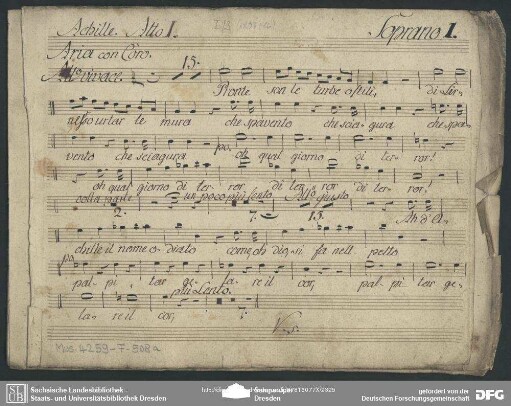 Achille. Atto I. Soprano I.
Aria con Coro.
15.
All.º vivace.
Pronte son le turbe ostili, di Ter-
urtar le mura che spavento che scia-gura che spa-
vento che sciagura oh qual giorno di ter- ror!
oh qual giorno di ter- ror, di ter- ror di ter- ror!
colla parte un poco più lento All.º giusto
2. 7. 15. Ah! d'A-
chille il nome o- diato come, oh dio, si fa nell petto
pal- pi- tar ge- lare il cor, pal- pi- tar ge-
più Lento.
la- re il cor,
V.S.
Mus. 4259-F-508a
SLUB
Sächsische Landesbibliothek
Staats- und Universitätsbibliothek Dresden
gefördert von der
Deutschen Forschungsgemeinschaft
DFG